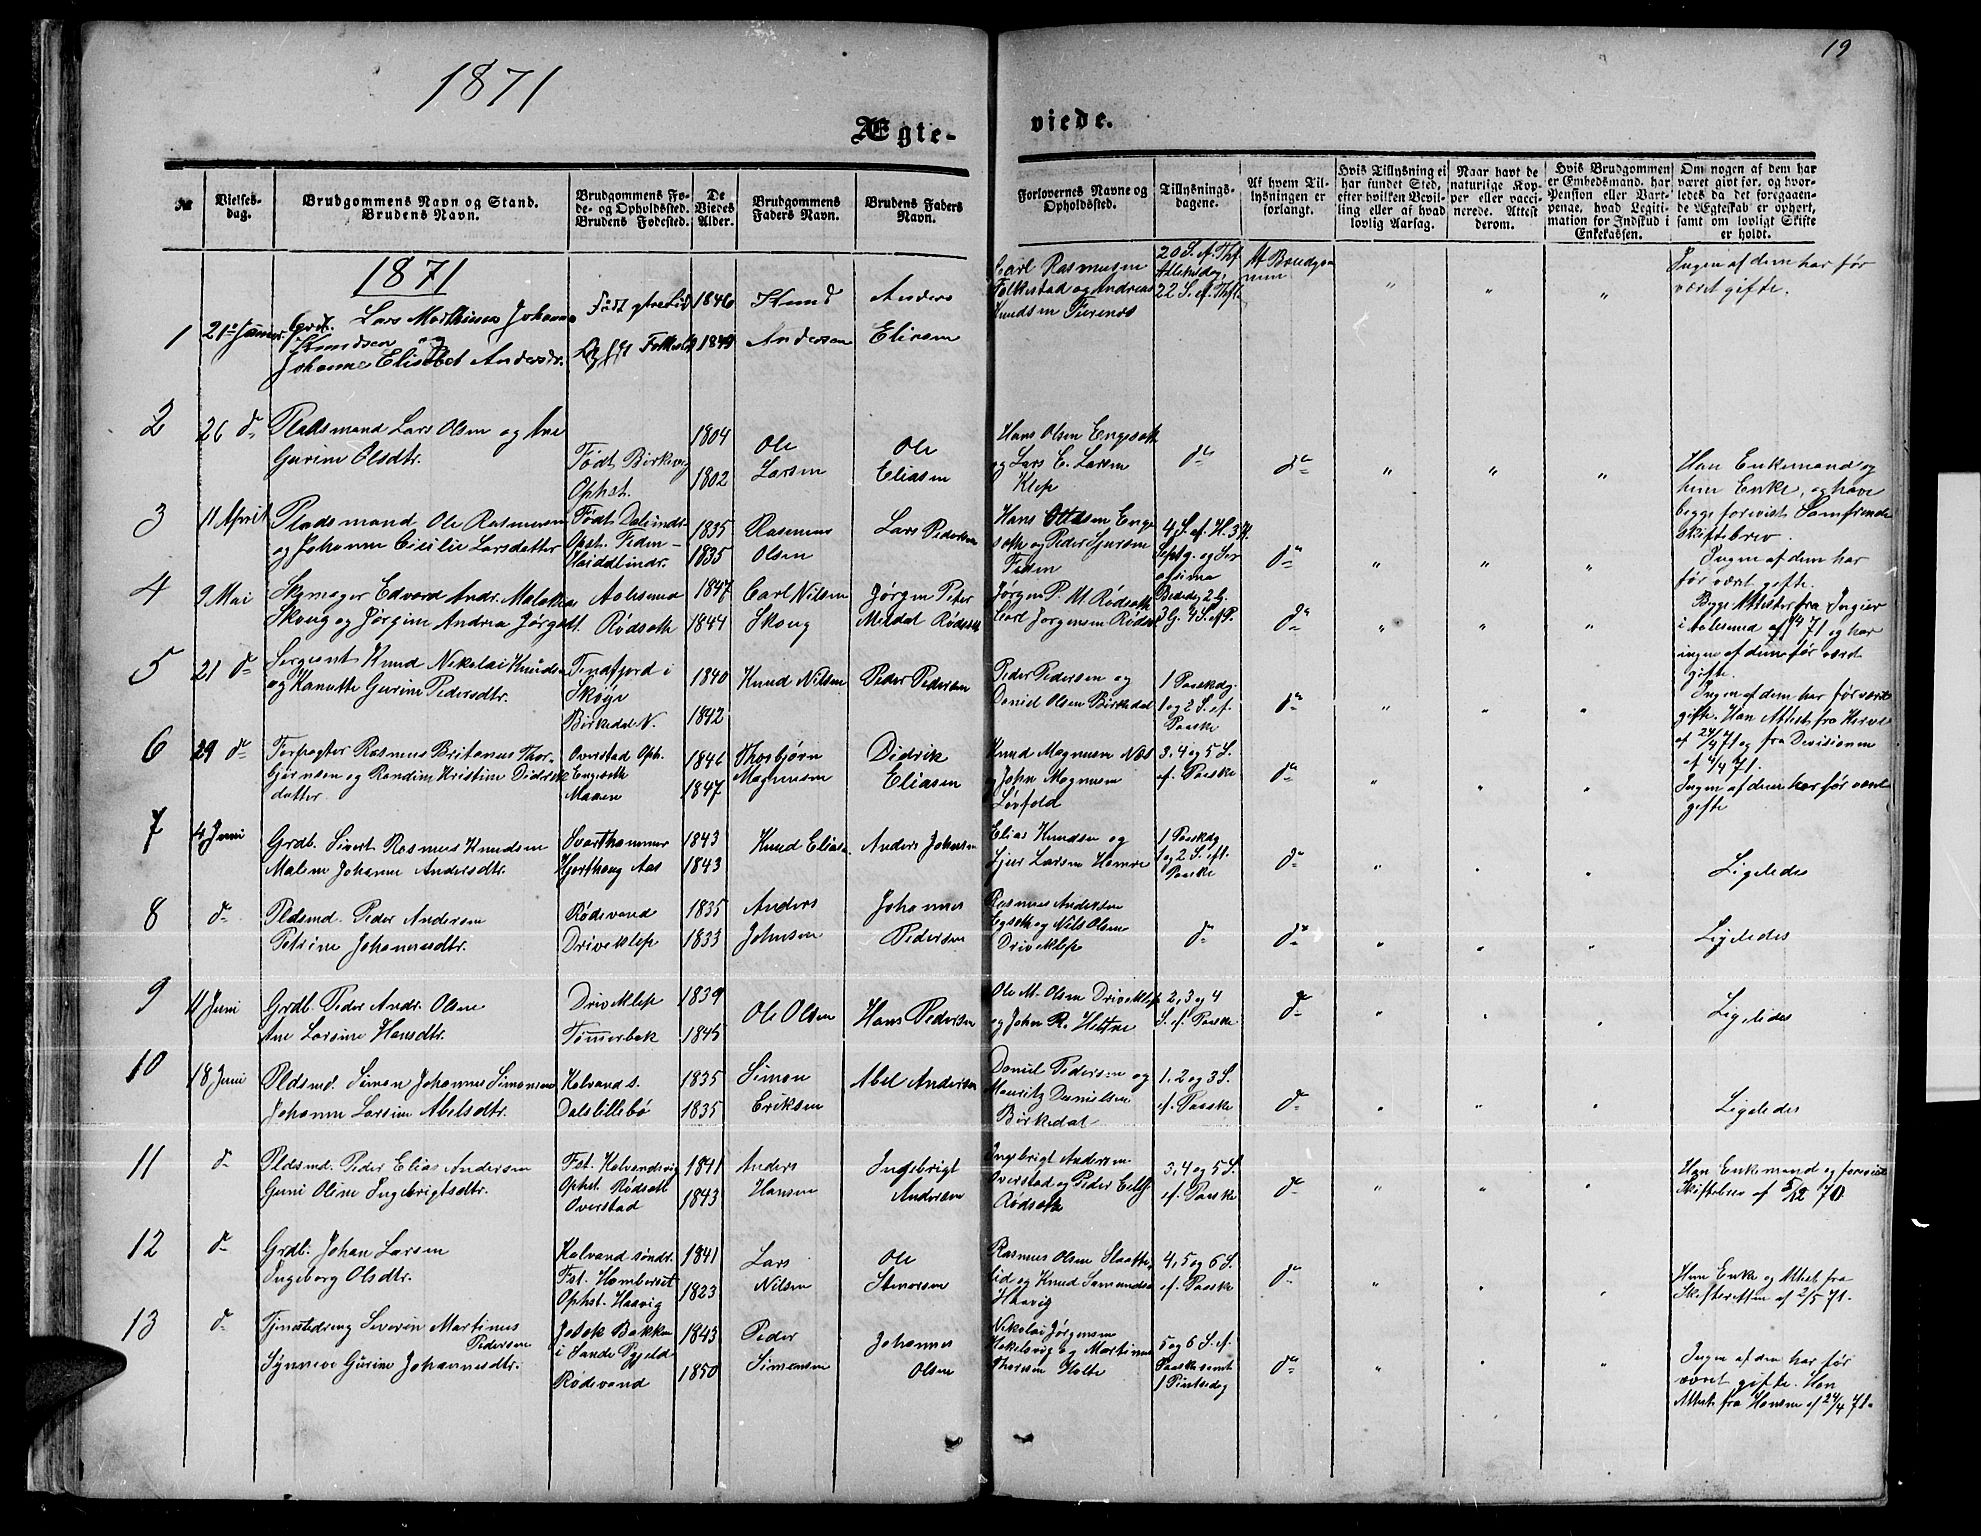 19
1871
Ægte-
viede.
№
Vielses-
dag.
Brudgommens Navn og Stand.
Brudens Navn.
Brudgommens Fø-
de- og Opholdssted.
Brudens Fødested.
De
Viedes
Alder.
Brudgommens
Faders Navn.
Brudens Faders
Navn.
Forlovernes Navne og
Opholdssted.
Tillysnings-
dagene.
Af hvem Til-
lysningen er
forlangt.
Hvis Tillysning ei
har fundet Sted,
efter hvilken Bevil-
ling eller af hvad
lovlig Aarsag.
Naar havt de
naturlige Kop-
per eller vacci-
nerede. Attest
derom.
Hvis Brudgommen
er Embedsmand, har
Pension eller Vart-
penge, hvad Legiti-
mation for Indskud i
Enkekassen.
Om nogen af dem har
været gift før, og hvor-
ledes da det foregaaen-
de Ægteskab er ophørt,
samt om lovligt Skifte
er holdt.
1871
1 21de Januar Lars Johan
Knudsen og
Johanne Elisabet Andersdtr.
Født
Født Folkestad
1846
1849
Knud
Andersen
Anders
Eliasen
Carl Rasmusen
Folkestad og Andreas
Knudsen
20 S. ef. Thf
Allehdag,
22 S. ef. Thf
Af Brudgom
men
" " "
Ingen af dem har før
været gifte.
2 26 d" Pladsmand Lars Olsen og
Gurine Olsdtr.
Født Birkevig
Ophst.
1804
1802
Ole
Larsen
Ole
Eliasen
Hans Olsen Engeseth
og Lars E. Larsen
Klep
d" d" " " "
Han Enkemand og
hun Enke, og have
begge forevist Samfrende
skiftebrev.
3 11 April Pladsmand Ole Rasmusen
og Johanne Cecilie Larsdatter
Født
Opst.
1835
1835
Rasmus
Olsen
Lars Pedersen
Hans Olsen Enge
seth og Peder Sjursen
4 S. ef. H. 3 K.
Septg. og Sex
agesima
d" " " "
Ingen af dem har
før været gifte.
4 9 Mai Skomager Edvard Andr.
Skoug og Jørgine Andrea Jørgsdt.
Aalesund
Rødseth
1847
1844
Carl Nilsen
Skoug
Jørgen Peter
Rødseth
Jørgen P. M. Rødseth
Carl Jørgensen Rødset
Bededg 2 G.
3 G. 4 S. ef P.
d" " " "
i Aalesund af 71 og har
ingen af dem før været
gifte.
5 21 d" Sergeant Knud Nikolai Knudsen
og Hanutte Gurine Pedersdtr.
Tennfjord i
Skøge
Birkedal N.
1840
1842
Knud Nilsen
Peder Pedersen
Peder Pedersen og
Daniel Olsen Birkedal
1 Paaskdg
1 og 2 S. ef.
Paaske
d" " " "
Ingen af dem har før været
gifte. Han Attest fra
af 24/4 71 og fra Devisionen
af 4/4 71.
6 29 d" Forpagter Rasmus Britanus Thor-
bjørnsen og Randine Kristine Didriks
datter
Overstad Oph.
Engeseth
Maaen
1846
1847
Thorbjørn
Magnusen
Didrik
Eliasen
Knud Magnusen Næs
og John Magnusen
Løvfold
3, 4 og 5 S.
ef. Paaske
d" " " "
Ingen af dem har før været
gifte
7 4 Juni Grdb. Sivert Rasmus Knudsen
Malene Johanne Andersdtr.
Svarthammer
Hjorthoug Aas
1843
1843
Knud Eliasen
Anders Johnsen
Elias Knudsen og
Sjur Larsen Hamre
1 Paaskdg
1 og 2 S. eft.
Paaske
d" " " "
Ligeledes
8 d" Pldsmd. Peder Andersen
Petrine Johannesdtr.
Rødevand
Driveklep
1835
1833
Anders
Johnsen
Johannes
Pedersen
Rasmus Andersen
Egseth og Nils Olsen
Driveklep
d" d" " " "
Ligeledes
9 11 Juni Grdb. Peder Andr. Olsen
Ane Larsine Hansdtr.
Driveklep
Tømerbak
1839
1845
Ole Olsen
Hans Pedersen
Ole M. Olsen Driveklep
og John R. Hestne
2, 3 og 4
S. ef. Paaske
d" " " "
Ligeledes
10 18 Juni Pldsmd. Simon Johannes Simonsen
Johanne Larsine Abelsdtr.
Kalvand s.
Dalslillebø
1835
1835
Simon
Eriksen
Abel Andersen
Daniel Pedersen og
Mauritz Danielsen
Birkedal
1, 2 og 3 S.
ef. Paaske
d" " " "
Ligeledes
11 d" Pldsmd. Peder Elias Andersen
Guni Oline Ingebrigtsdtr.
Fst. Kalvandsvig
Ophst. Rødseth
Overstad
1841
1843
Anders
Hansen
Ingebrigt
Andersen
Ingebrigt Andersen
Overstad og Peder
Rødseth
3, 4 og 5 S.
ef. Paaske
d" " " "
Han Enkemand og foreviste
Skiftebrev af 5/12 70.
12 d" Grdb. Johan Larsen
Ingeborg Olsdtr.
Kalvand søndr.
Fst. Hamberset
Ophst. Haavig
1841
1823
Lars
Nilsen
Ole
Rasmus Olsen Slaatte
lid og Knud Samundsen
Haavig
4, 5 og 6 S.
ef. Paaske
d" " " "
Hun Enke og Attest fra
Skifteretten af 2/5 71.
13 d" Tjenestedreng Severin Martinus
Pedersen
Synneve Gurine Johannesdtr.
Bakken
i Sande Pgjeld
Rødevand
1843
1850
Peder
Simonsen
Johannes
Olsen
Nikolai Jørgensen
Hakelsvig og Martinus
Thorsen Holte
5 og 6 S. ef.
Paaske samt
1 Pintsedag
d" " " "
Ingen af dem har før
været gifte. Han
Attest fra Hansen af 24/4 71.